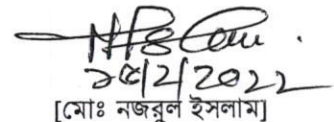 ২৫/2/2022
[মোঃ নজরুল ইসলাম]